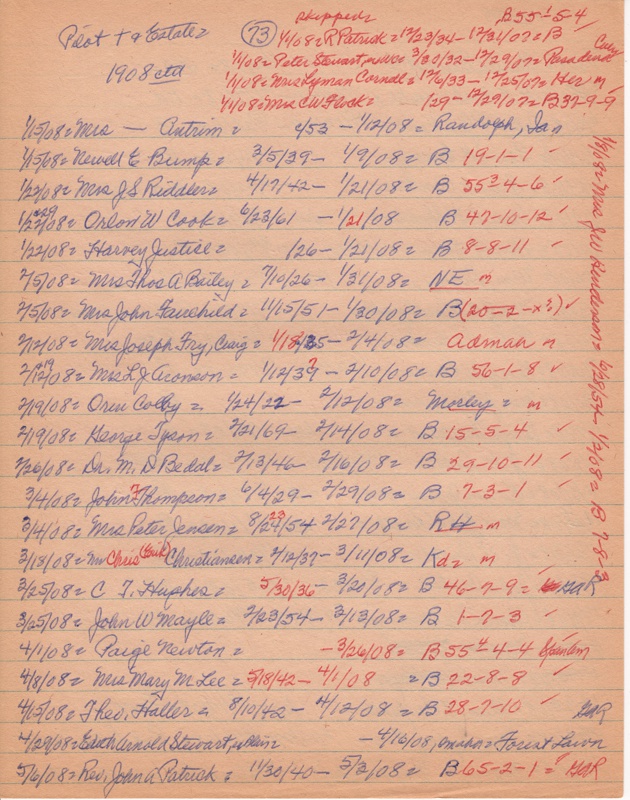 Pilot + a Estate=
1908 ctd
73
skipped=
B55⁴-5-4
1/1/08= R Patrick= 12/23/34- 12/31/07= B
1/1/08= Peter Stewart, 3/30/32- 12/29/07= Pasadena Cal
1/1/08= Mrs Lyman Cornell= 12/4/33- 12/25/07= Her m
1/1/08= Mrs CW Flock= /29- 12/29/07= B37-9-9
1/15/08= Mrs — Antrim= c/53 - 1/12/08= Randolph, Ia n
1/15/08= Newell E Bump= 3/5/39- 1/9/08= B 19-1-1 ✓
1/22/08= Mrs J S Riddler= 4/17/42- 1/21/08= B 55³-4-6 ✓
1/22/08= Orlon W Cook= 6/23/61 - 1/21/08 B 47-10-12 ✓
1/22/08= Harvey Justice= /26- 1/21/08= B 8-8-11 ✓
2/5/08= Mrs Thos A Bailey= 7/10/26- 1/31/08= NE m
2/5/08= Mrs John Fauchild= 11/15/51- 1/30/08= B(20-2-x?) ✓
2/12/08= Mrs Joseph Fry, Craig= 1/18/35- 2/4/08= Admah n
2/12/08= Mrs L J Aronson= 1/12/39- 2/10/08= B 56-1-8 ✓
2/19/08= Oren Colby= 1/24/22- 2/12/08= Morley= m
2/19/08= George Tyson= 2/21/69- 2/14/08= B 15-5-4 ✓
2/26/08= Dr. M. D Bedal= 2/13/46- 2/16/08= B 29-10-11 ✓
3/4/08= John ? Thompson= 6/4/29- 2/29/08= B 7-3-1 ✓
3/4/08= Mrs Peter Jensen= 8/23/54 2/27/08= RH m
3/18/08= Mr Chris Christiansen= 2/12/37- 3/11/08= Kd= m
3/25/08= C T. Hughes= 5/30/36- 3/20/08= B 46-7-9= GAR
3/25/08= John W Mayle= 2/23/54- 3/13/08= B 1-7-3 ✓
4/1/08= Paige Newton= - 3/26/08= B 55⁴-4-4 SpanAm
4/8/08= Mrs Mary M Lee= 5/18/42- 4/1/08 =B 22-8-8 ✓
4/15/08= Theo. Haller= 8/10/42- 4/12/08= B 28-7-10 ✓ GAR
4/29/08= Edith Arnold Stewart, - 4/16/08, Omaha= Forest Lawn
5/6/08= Rev. John A Patrick= 11/30/40- 5/2/08= B65-2-1= GAR
1/8/08= Mrs JW Henderson= 6/28/54- 1/2/08= B 7-8-3